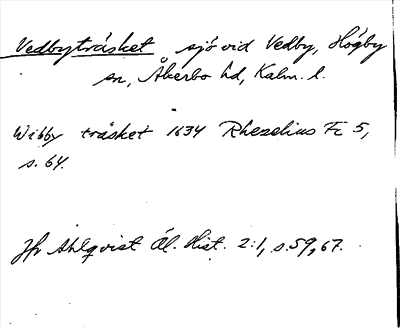 Vedbyträsket sjö vid Vedby, Högby
sn, Åkerbo hd, Kalm. l.
Wibby träsket 1634 Rhezelius Fc 5,
s. 64.
Jfr Ahlqvist Öl. Hist. 2:1, s. 59, 67.